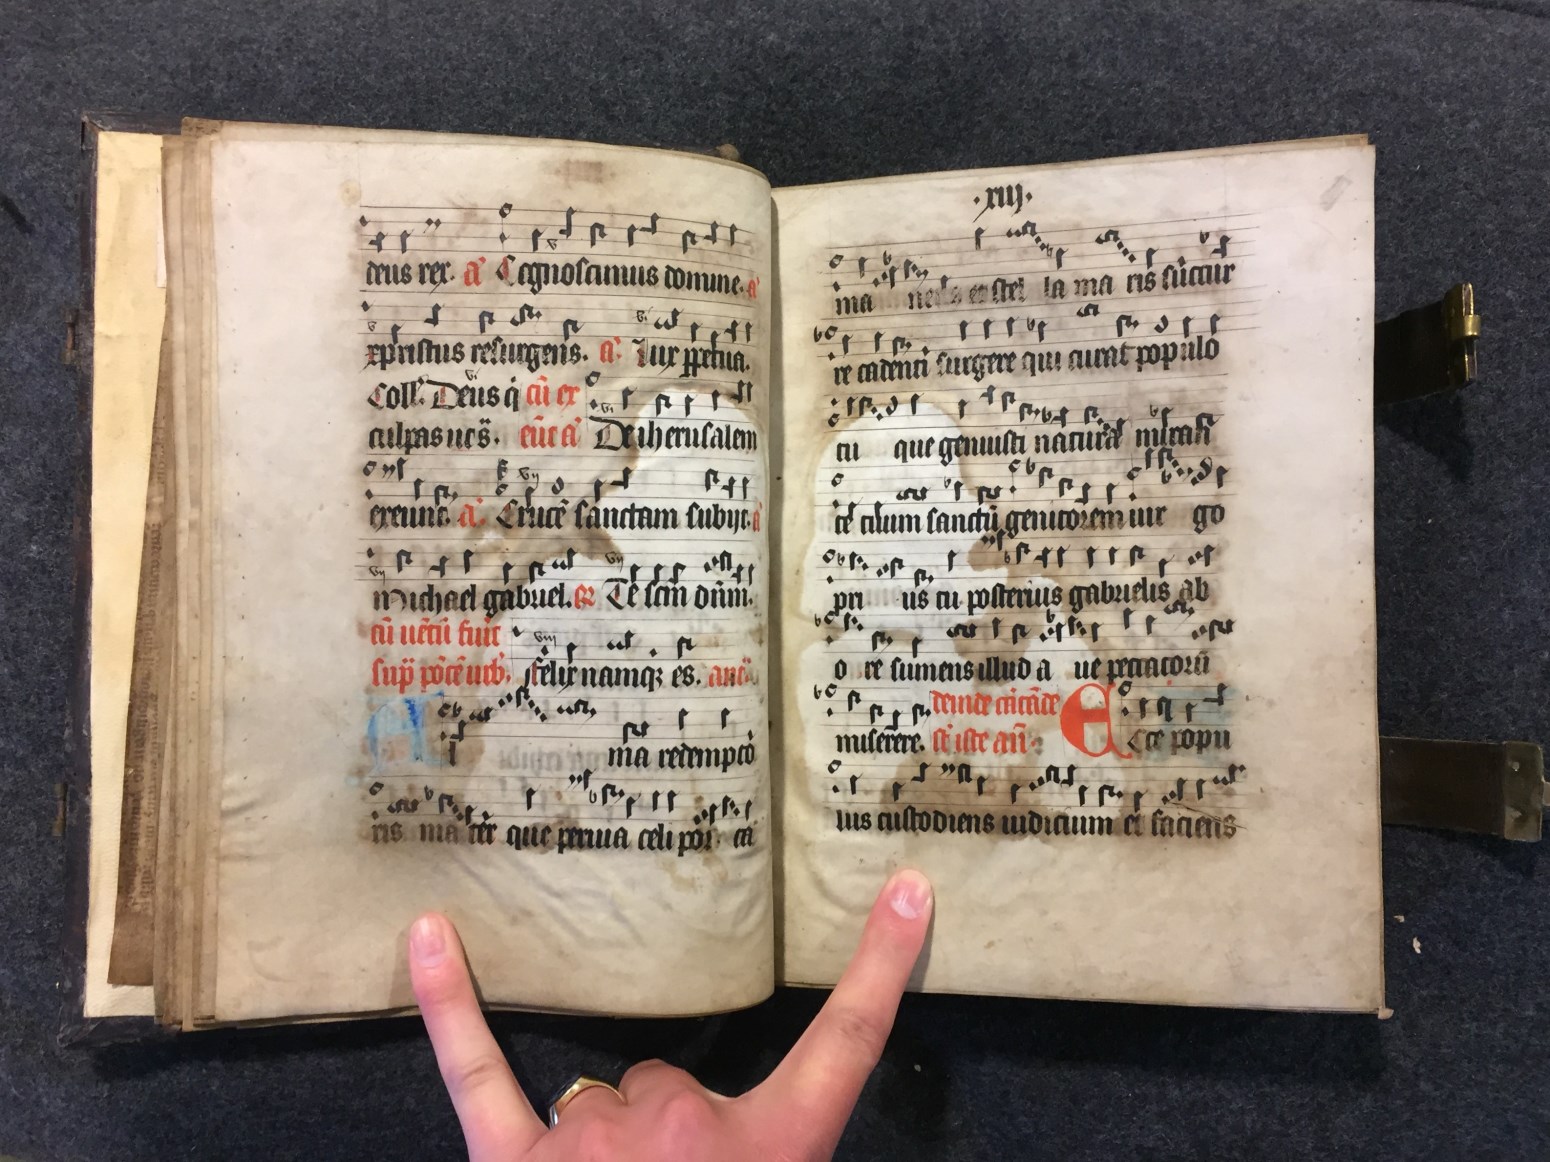 deus rex. a̅ Cognoscimus domine. a̅
xpristus resurgens. a̅ Lux ꝑpetua.
Coll. Deus q̇ cu̅ ex
culpas nr̅s. a̅ De iherusalem
exeunt. a̅. Cruce̅ sanctam subijt. a̅
Michael gabriel. Te scm̅ dn̅m.
felix namqꝫ es.
Alma redempto
ris mater que peruia celi por ta
·xiij·
ma nens et stel la ma ris succur
re cadenti surgere qui curat populo
tu que genuisti natura mirari
te̅ tuum sanctu̅ genitorem uir go
pri us cu posterius gabrielis ab
o re sumens illud a ue peccatoru̅
miserere. Ecce popu
lus custodiens iudicium et faciens